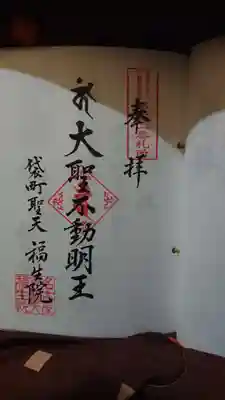 奉拝
大聖不動明王
袋町聖天 福生院